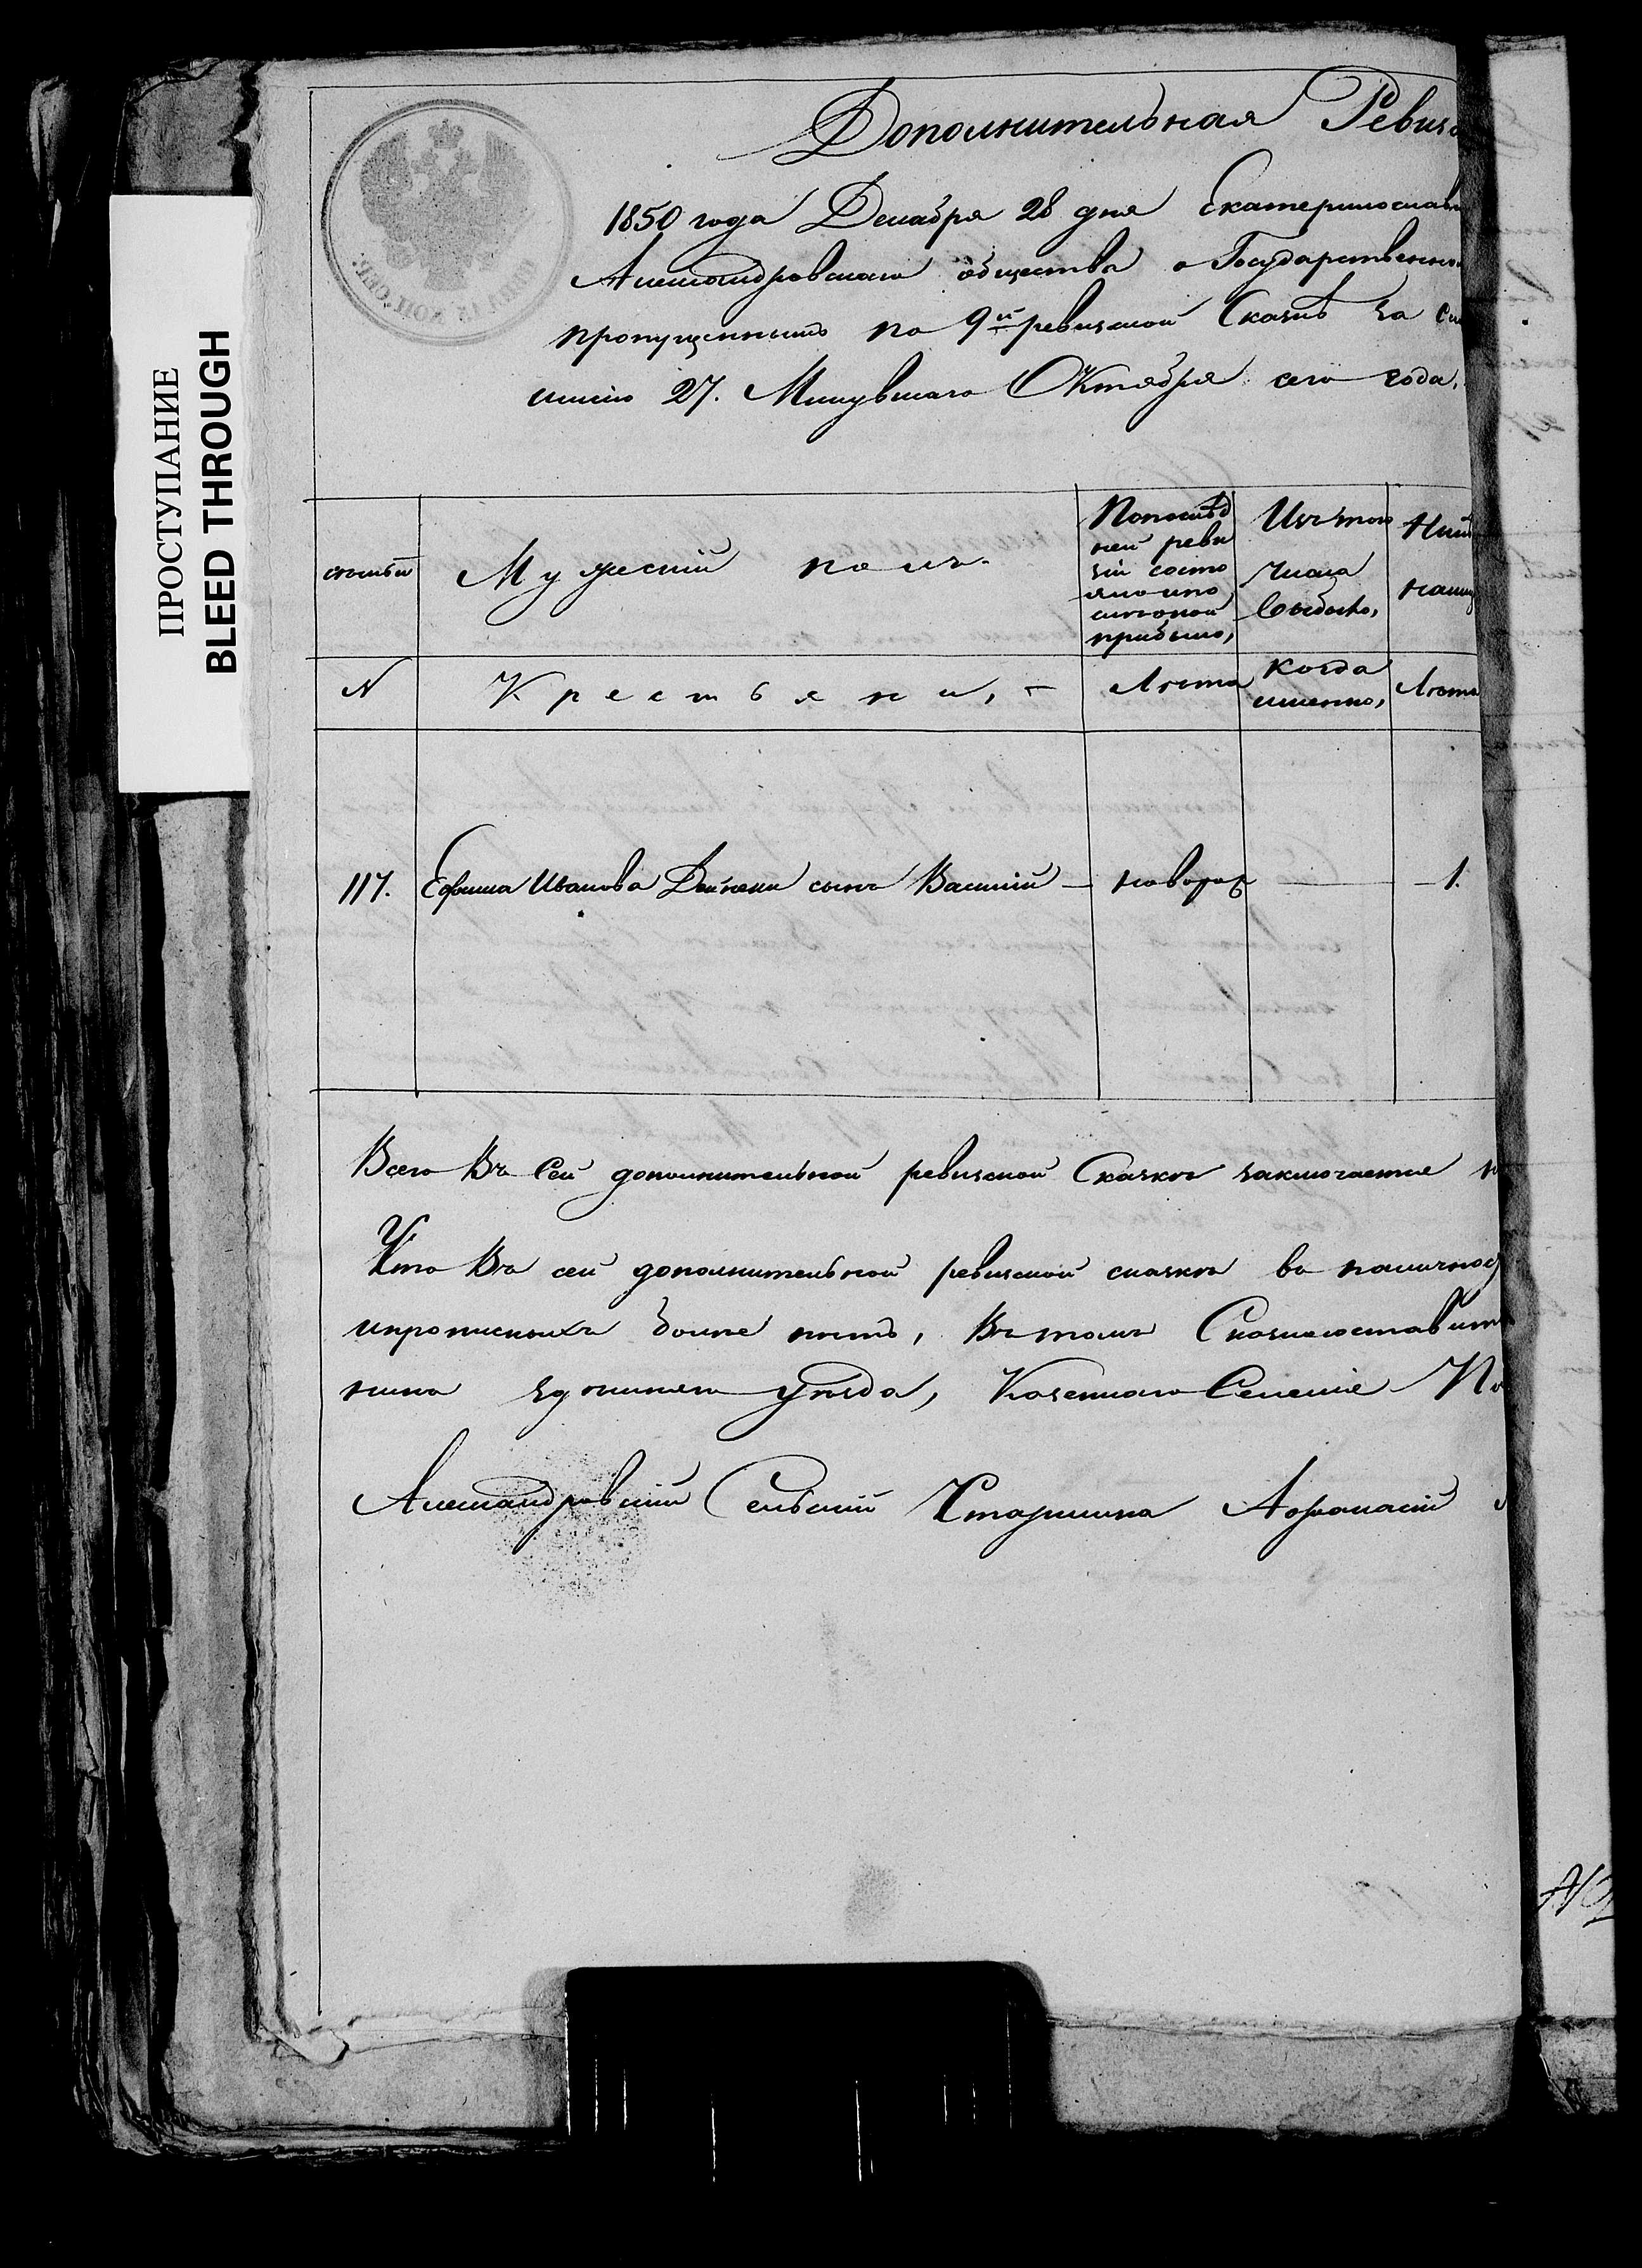 ПРОСТУПАНИЕ
BLEED THROUGH
Дополнительная Ревиз
1850 года Декабря 28 дня Екатеринослав
Александровскаго общества о Государственно
пропущеннымъ по 9й ревизской Сказкѣ за
27. Минувшаго Октября сего года,
семьи
Мужескій полъ.
Попослѣд
ней реви
зіи состо
яло ипо
слѣ оной
прибыло,
Изъ того
числа
выбыло,
Нын
налиц
N
Крестьяни, -
Лѣта
когда
именно,
Лѣта
117.
Ефима Иванова Дейнеки сынъ Василій
новорож
1.
Всего Въ Сей дополнительной ревизской Сказкѣ заключается
Что Въ сей дополнительной ревизской сказкѣ во наличнос
ипрописныхъ болѣе нѣтъ, Въ томъ Сказкосоставит
уѣзда, Казеннаго Селенія По
Александровскій Сельскій Старшина Афанасій